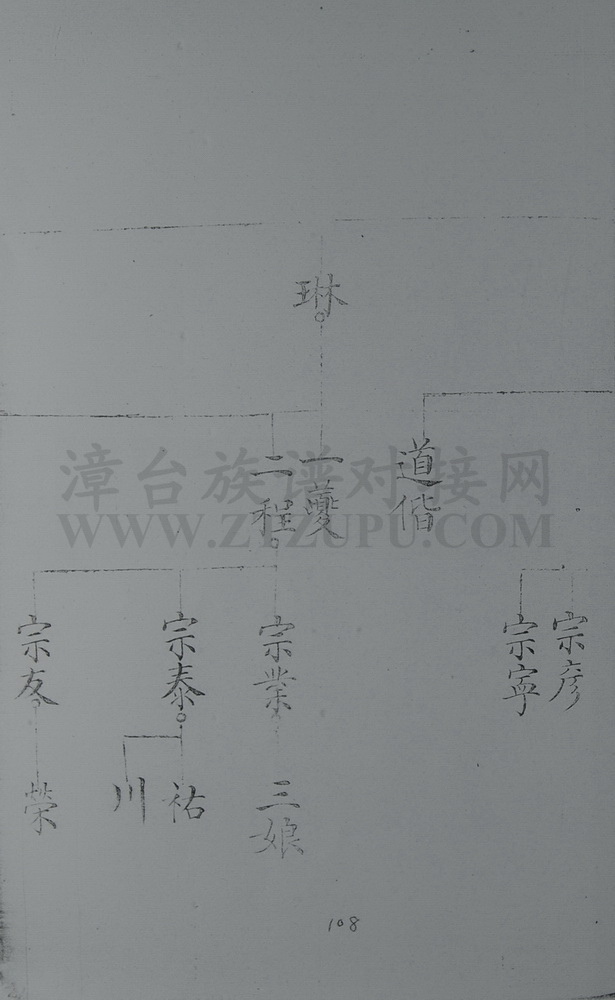 琳
道偕
一夔
二程
宗彦
宗寧
宗業
宗泰
宗友
三娘
祐
川
榮
漳台族谱对接网
WWW.ZTZUPU.COM
108